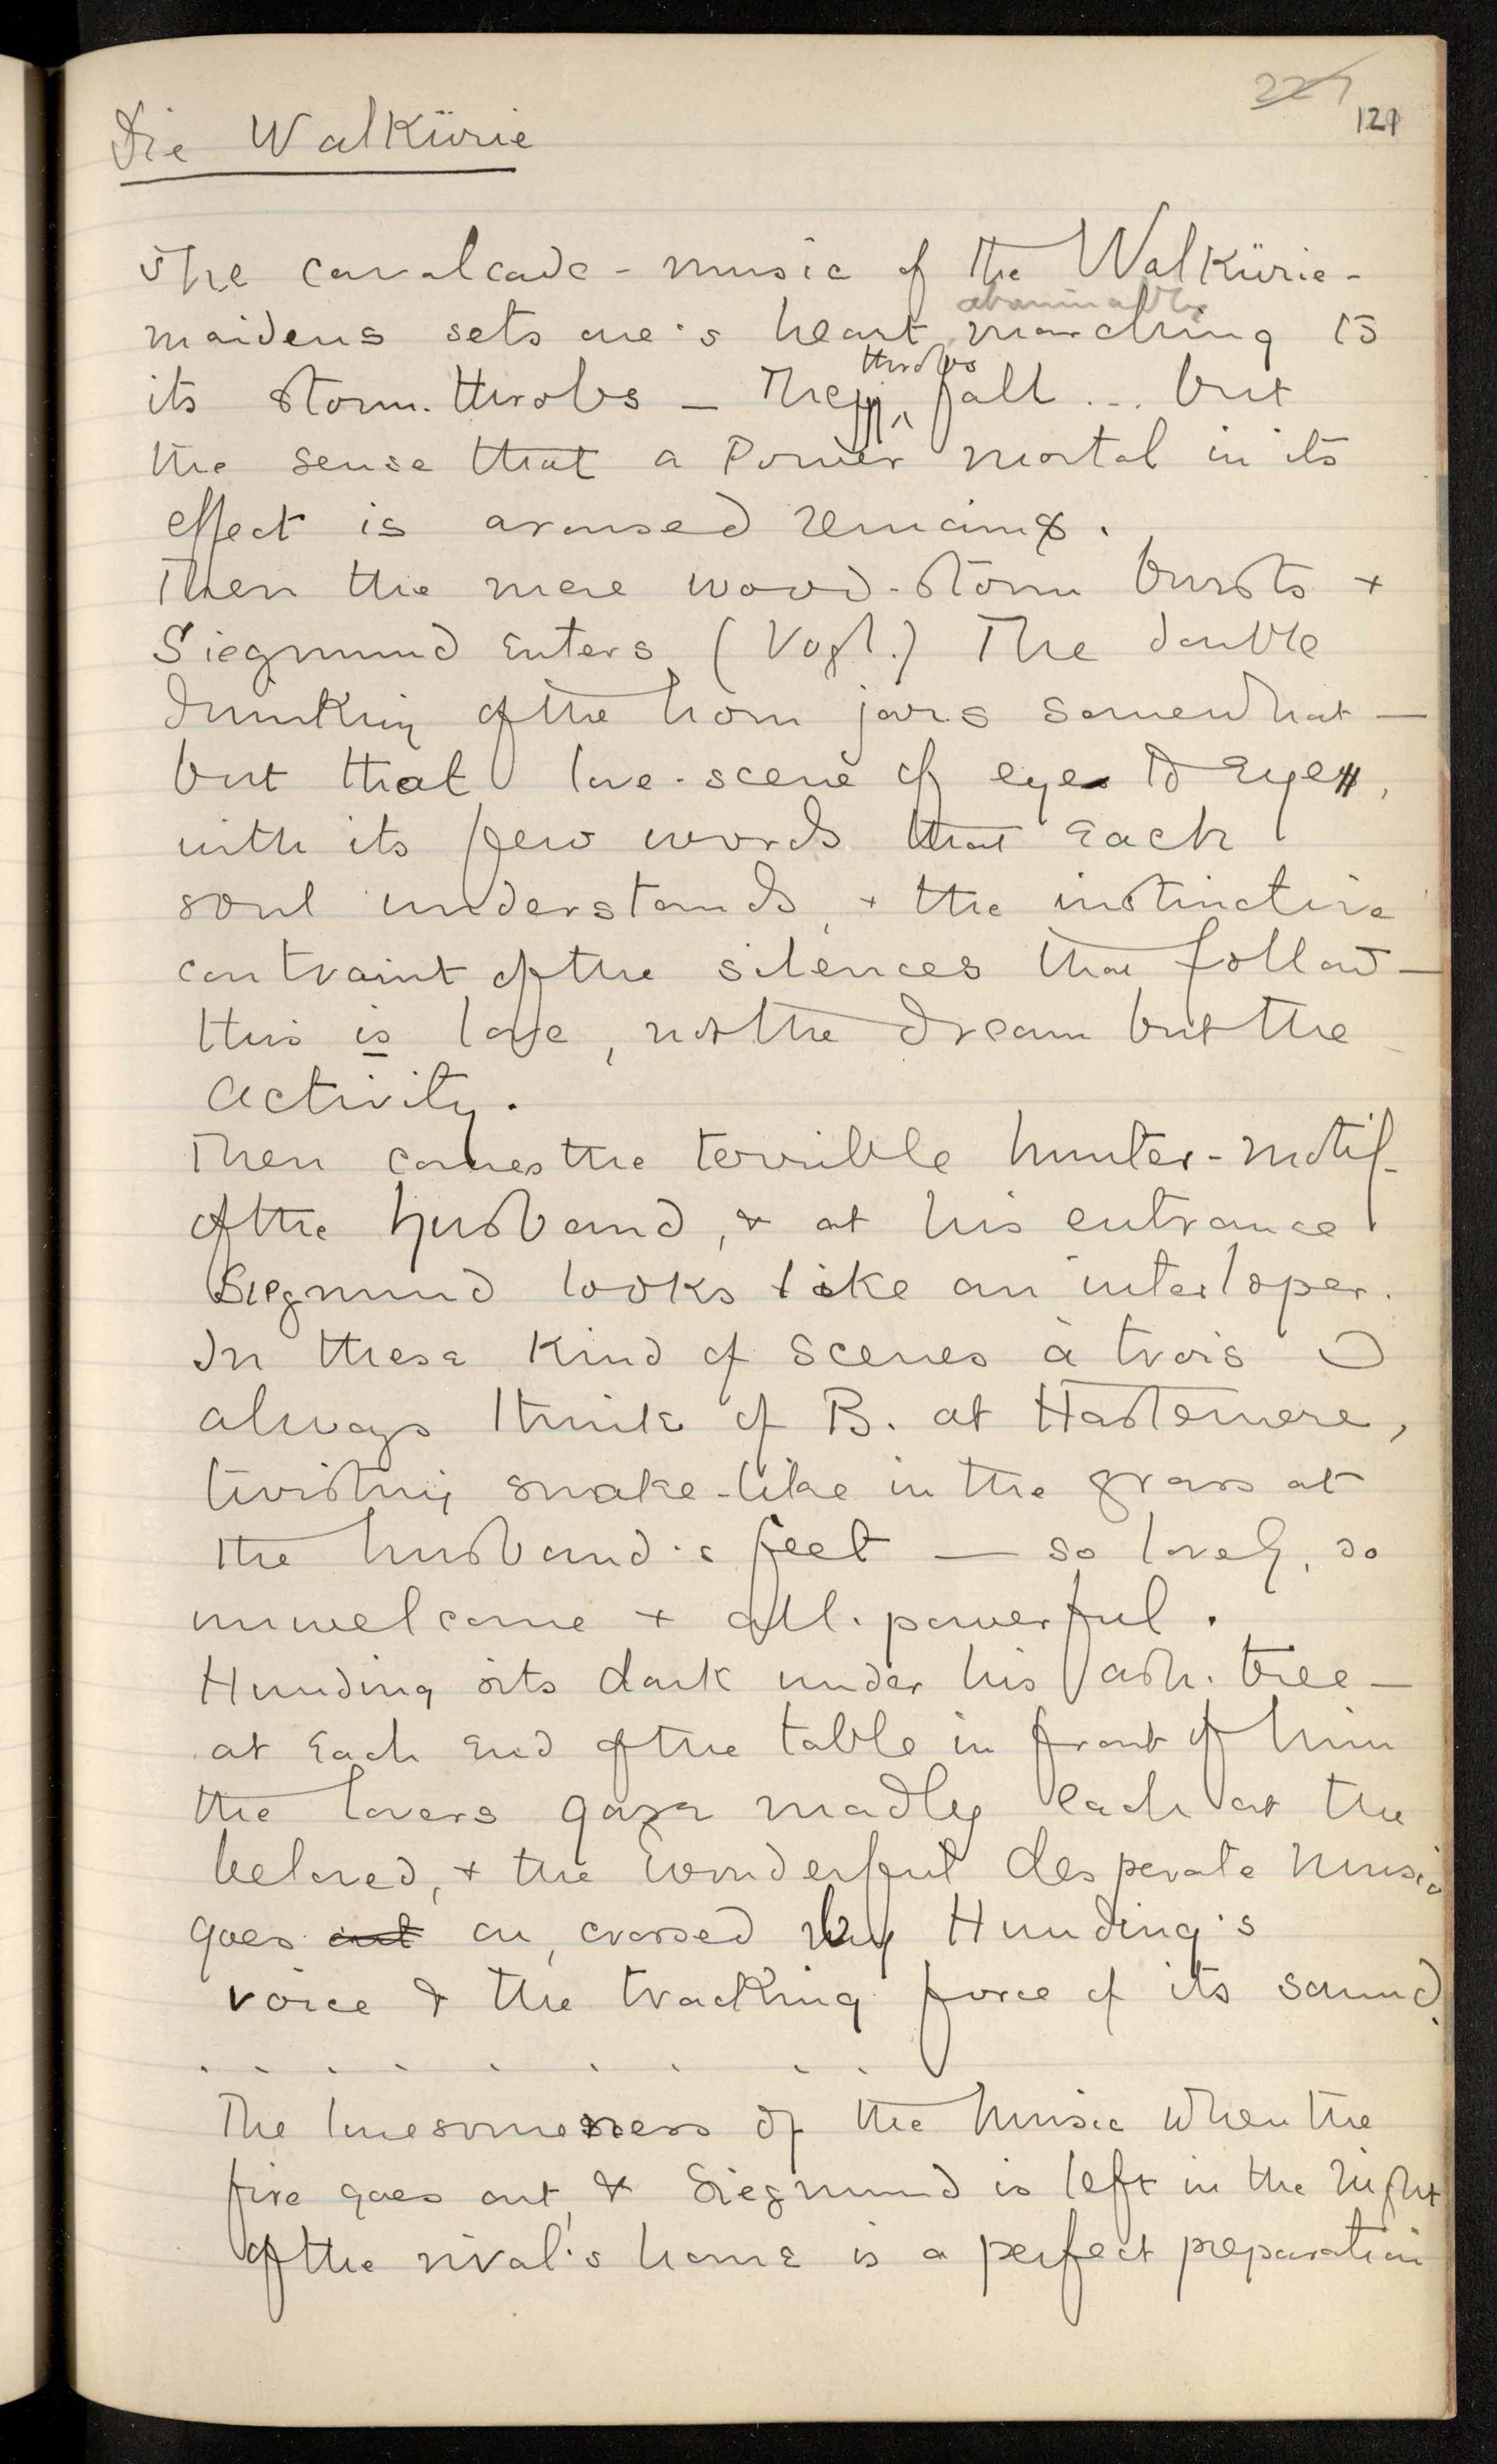 227
121
Die Walkürie
The cavalcade-music of the Walkürie-
abominable
maidens sets one's heart marching to
throbs
its storm-throbs — The fall... but
the sense that a Power mortal in its
effect is aroused remains.
Then the mere wood-storm bursts +
Siegmund enters (Vogl.) The double
drinking of the horn jars somewhat —
but that love-scene of eyes to eyes,
with its few words that each
soul understands, + the instinctive
contraint of the silences that follow —
this is love, not the dream but the
activity.
Then comes the terrible hunter-motif
of the husband, & at his entrance
Siegmund looks like an interloper.
In these kind of scenes à trois I
always think of B. at Haslemere,
twisting snake-like in the grass at
the husband's feet — so lovely, so
unwelcome + all-powerful.
Hunding sits dark under his ash-tree —
at each end of the table in front of him
the lovers gaze madly each at the
beloved, + the wonderful desperate music
goes out on, crossed by Hunding's
voice & the tracking force of its sound.
. . . . . . . . .
The lonesomeness of the music when the
fire goes out, & Siegmund is left in the night
of the rival's home is a perfect preparation